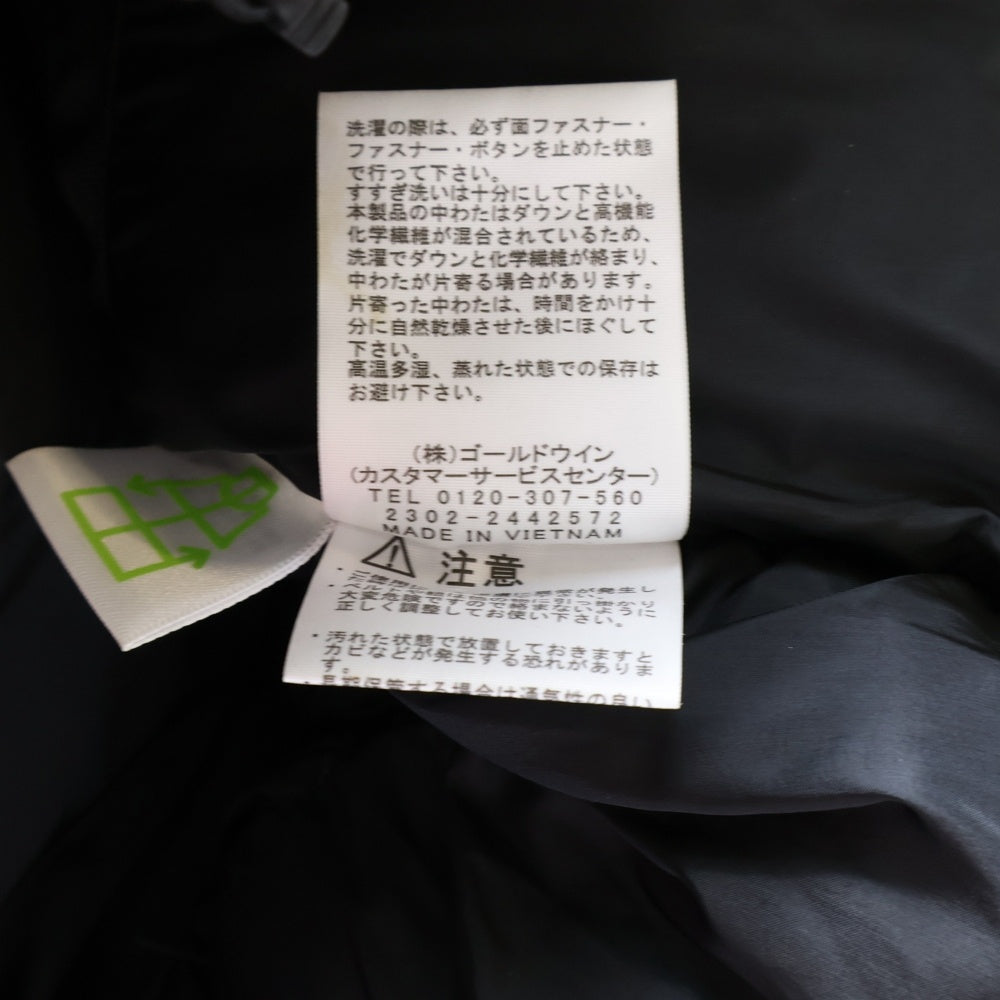 洗濯の際は、必ず面ファスナー・
ファスナー・ボタンを止めた状態
で行って下さい。
すすぎ洗いは十分にして下さい。
本製品の中わたはダウンと高機能
化学繊維が混合されているため、
洗濯でダウンと化学繊維が絡まり、
中わたが片寄る場合があります。
片寄った中わたは、時間をかけ十
分に自然乾燥させた後にほぐして
下さい。
高温多湿、蒸れた状態での保存は
お避け下さい。
(株)ゴールドウイン
(カスタマーサービスセンター)
TEL 0120-307-560
2302-2442572
MADE IN VIETNAM
注意
大変危険ですので絡まないように
正しく調整してお使い下さい。
・汚れた状態で放置しておきますと
カビなどが発生する恐れがありま
す。
・長期保管する場合は通気性の良い